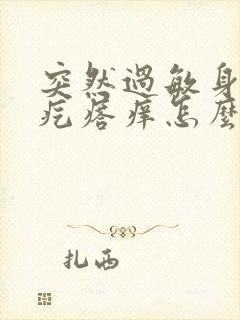 突然過敏身
疙瘩癢怎麼
扎西